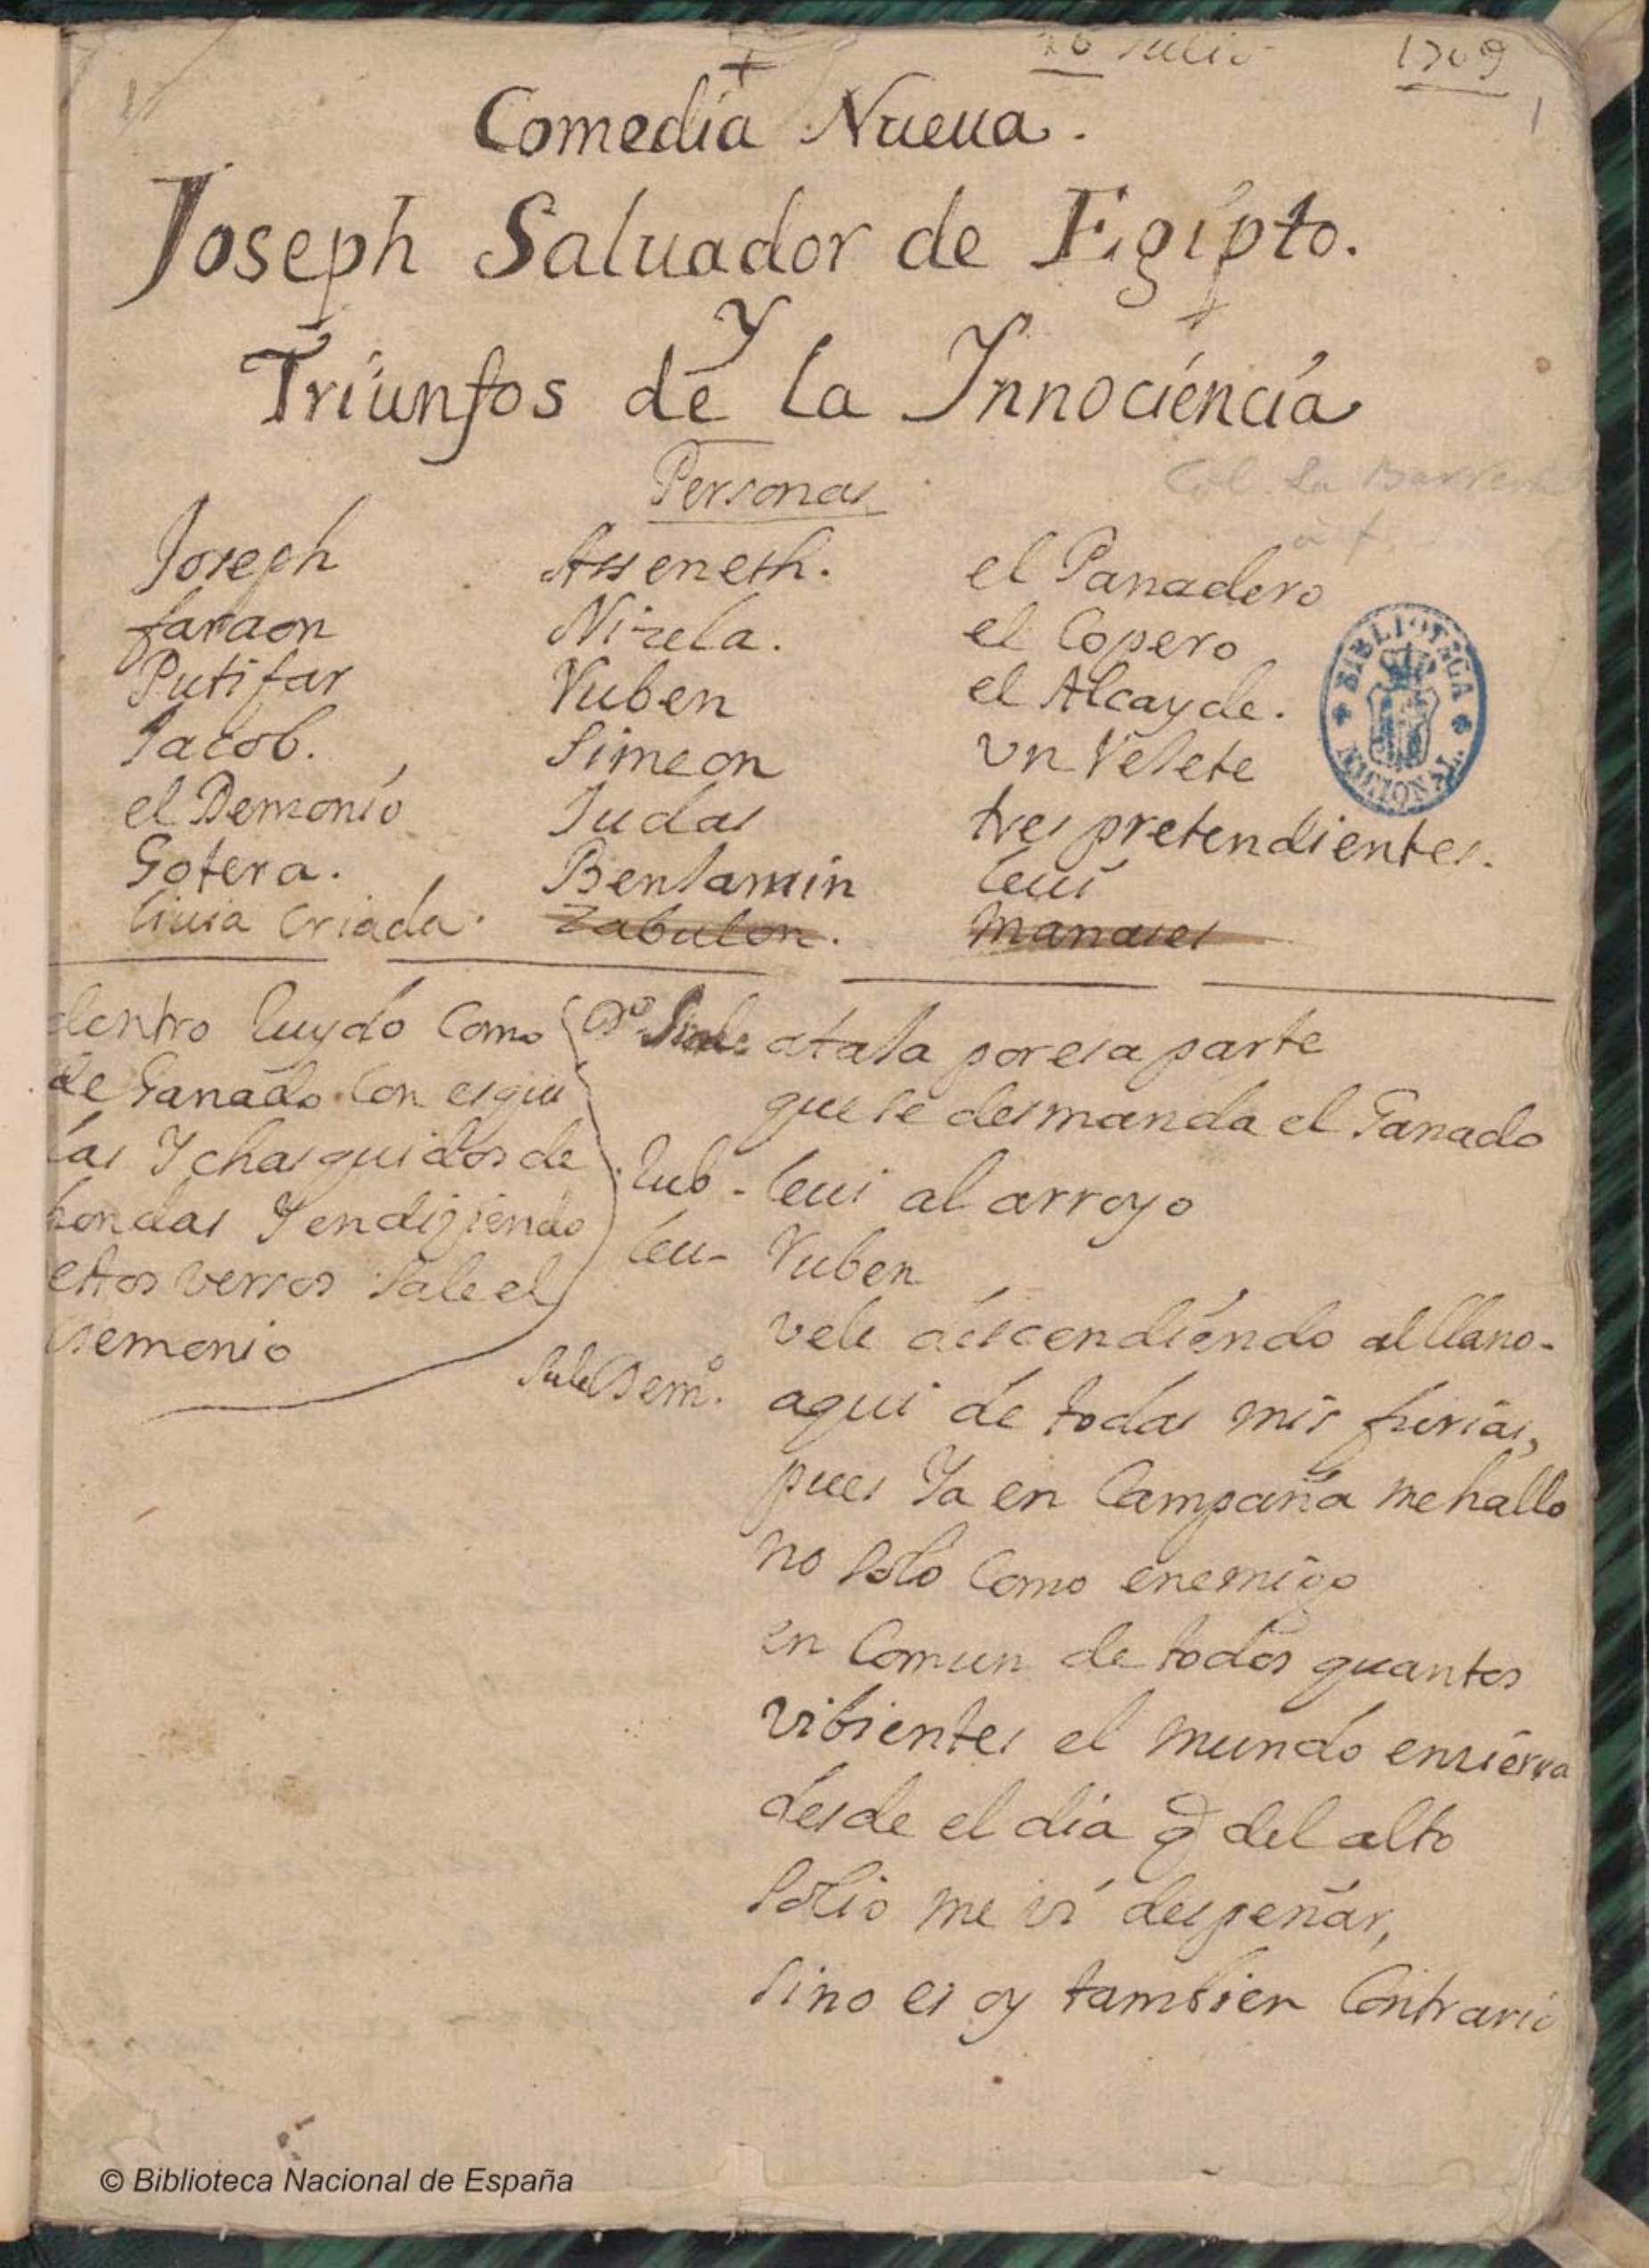 26 Julio 1709
1
Comedia Nueua.
Joseph Saluador de Egipto.
Y
Triunfos de la Innociencia
Personas
Col. La Barrera
Joseph Asseneth. el Panadero
faraon Nizela. el Copero
Putifar Ruben el Alcayde.
Jacob. Simeon vn Vejete
el Demonio Judas tres pretendientes.
Gotera. Benjamin Leui
Liuia Criada. Zabulon. Manases
dentro Ruydo Como
de Ganado Con esqui
las Y chasquidos de
hondas Y en diziendo
estos versos Sale el
Demonio
Dº Sim. ataja por esa parte
que se desmanda el Ganado
Rub - Leui al arroyo
Leu - Ruben
vele descendiendo al llano -
Sale Demº. aqui de todas mis furias,
pues Ya en Campaña me hallo
no Solo Como enemigo
en Comun de todos quantos
vibientes el mundo enzierra
desde el dia q del alto
Solio me vi despeñar,
Sino es oy tambien Contrario
BIBLIOTECA NACIONAL
© Biblioteca Nacional de España